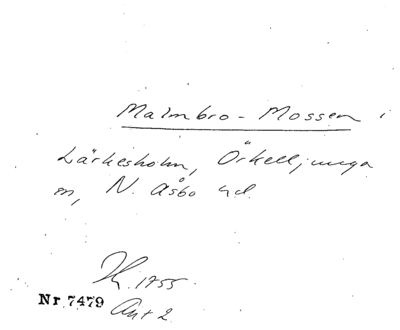 Malmbro-Mossen i
Lärkesholm, Örkelljunga
sn, N. Åsbo hd.
1755
Nr. 7479
Akt 2